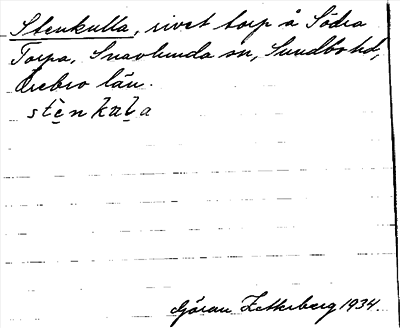 Stenkulla, rivet torp å Södra
Torpa, Snavlunda sn, Sundbo hd,
Örebro län.
stẹ̀nkuḷa
Göran Zetterberg 1934.